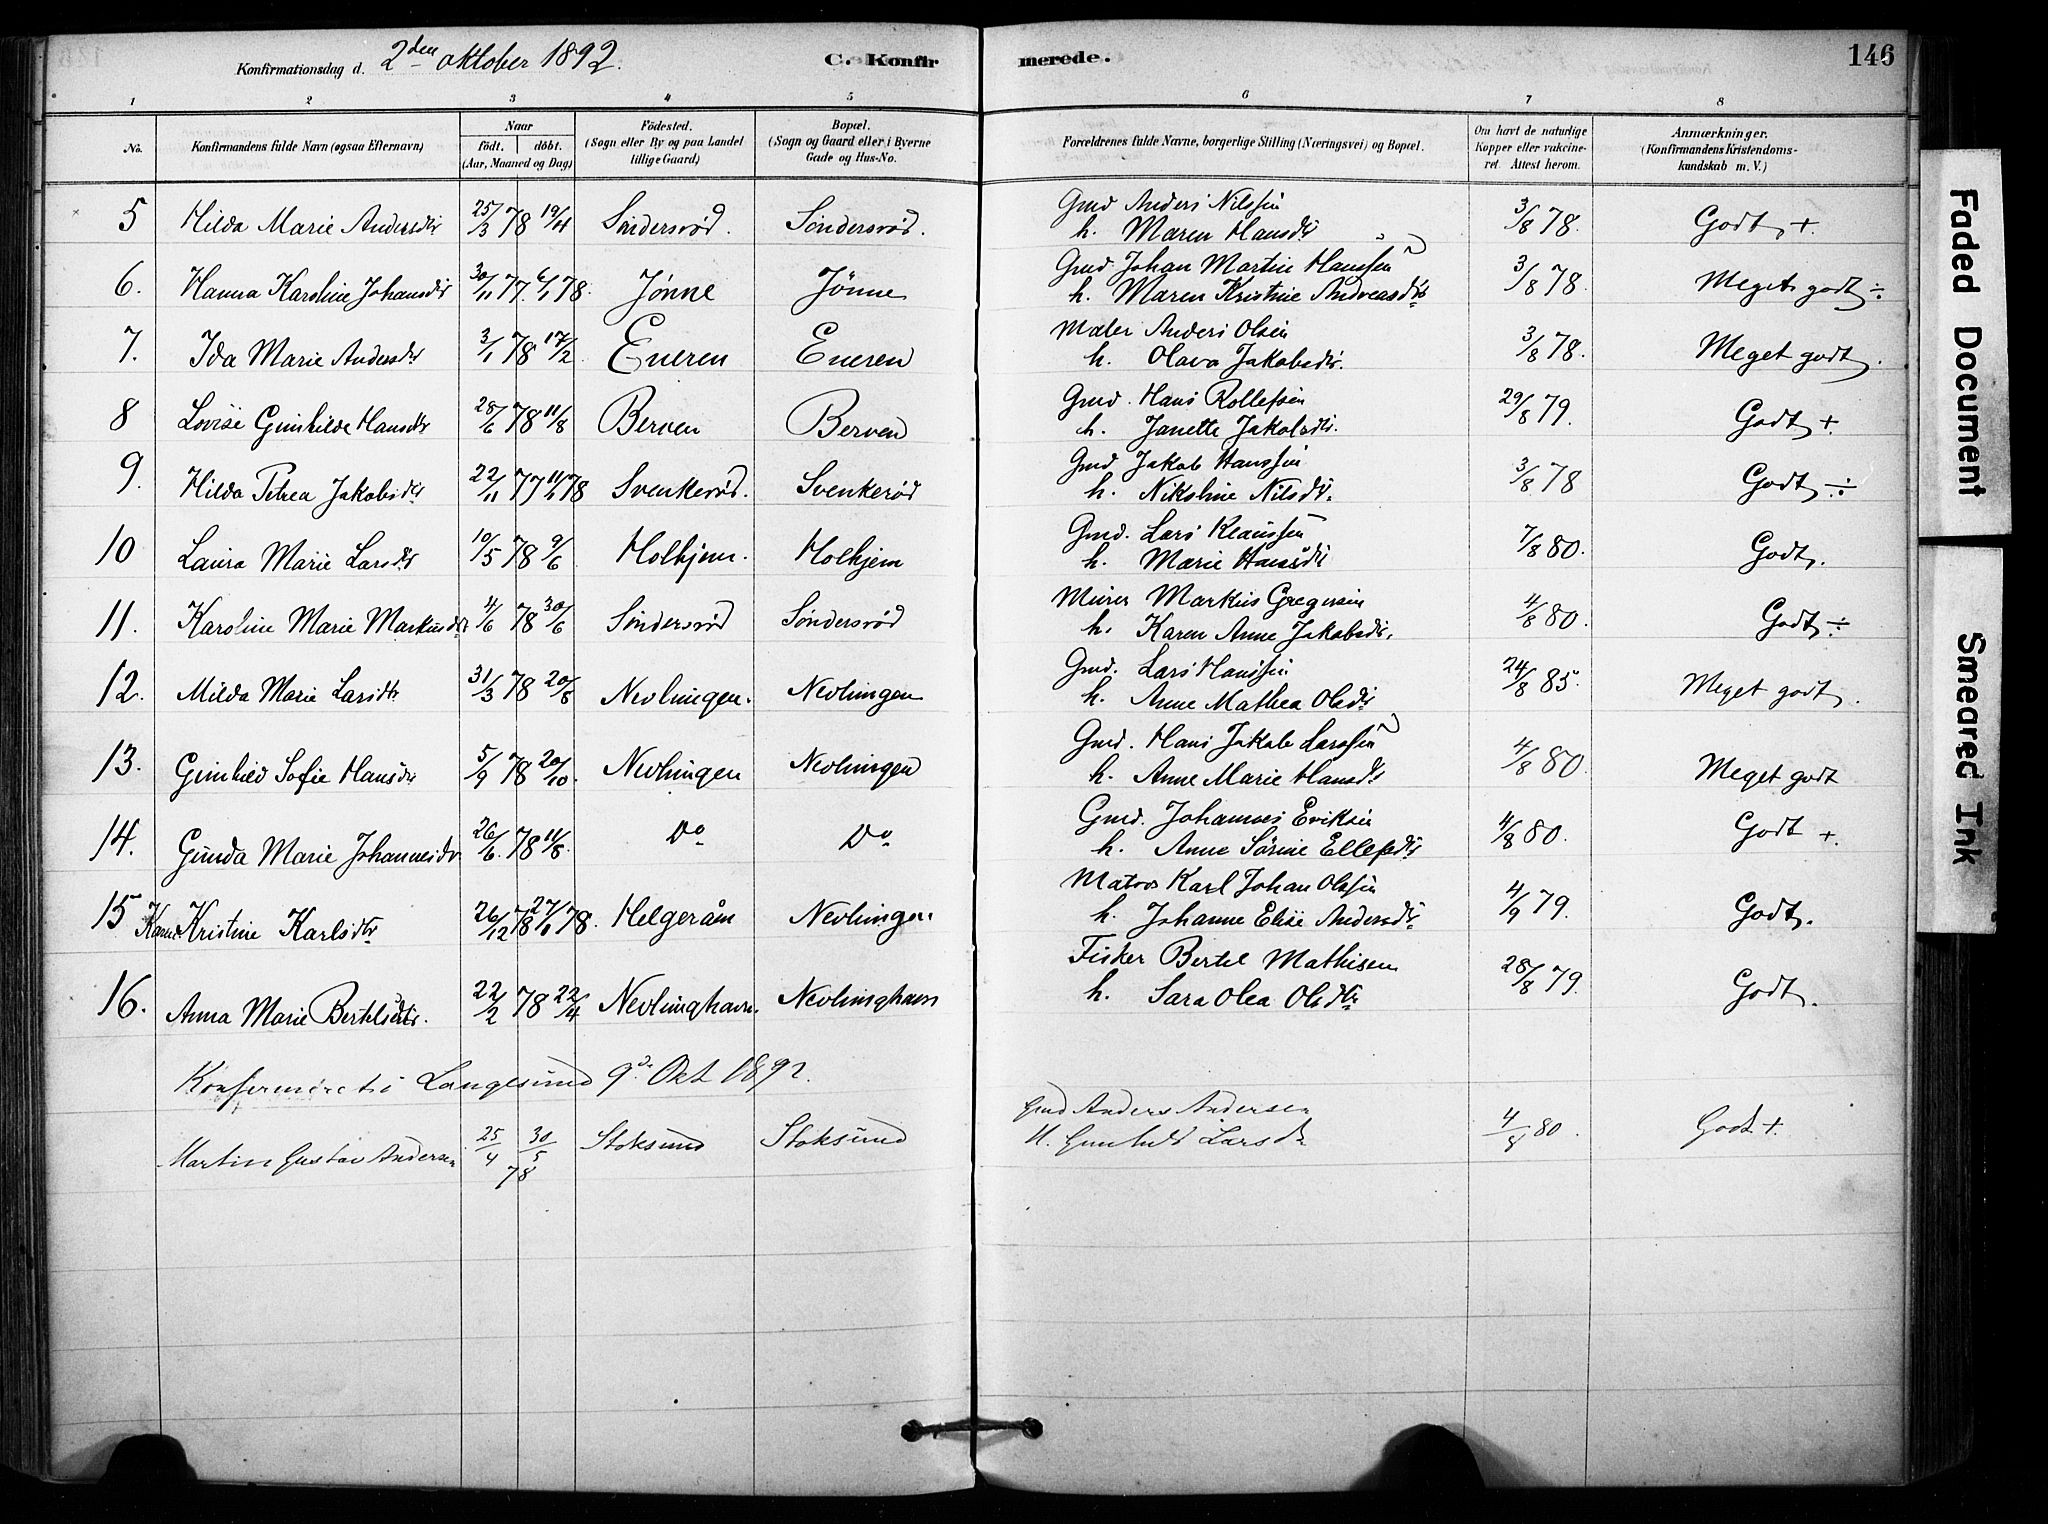 Konfirmationsdag d. 2den oktober 1892. C. Konfirmerede. 146
1 2 3 4 5 6 7 8
No. Konfirmandens fulde Navn (ogsaa Efternavn) Naar født. døbt. (Aar, Maaned og Dag) Fødested. (Sogn eller By og paa Landet tillige Gaard) Bopæl. (Sogn og Gaard eller i Byerne Gade og Hus-No. Forældrenes fulde Navne, borgerlige Stilling (Næringsvei) og Bopæl. Om havt de naturlige Kopper eller vakcineret. Attest herom. Anmærkninger. (Konfirmandens Kristendomskundskab m. V.)
5 Hilda Marie Andersdtr 25/3 78 19/4 Söndersröd. Söndersröd. Gmd Anders Nilssen 3/8 78. Godt +.
h. Maren Hansdtr
6. Hanna Karoline Johansdtr 30/11 77. 6/1 78. Jönne Jönne Gmd. Johan Martin Hanssen 3/8 78. Meget godt ÷
h. Maren Kristine Andreasdtr
7. Ida Marie Andersdtr 3/1 78 17/2 Eneren Eneren Maler Anders Olsen 3/8 78. Meget godt.
h. Olava Jakobsdtr.
8 Lovise Gunhilde Hansdtr 28/6 78 11/8 Berven Berven Gmd. Hans Rollefsen 29/8 79. Godt +
h. Janette Jakobsdtr.
9. Hilda Petrea Jakobsdtr 22/11 77 11/1 78 Svenkeröd. Svenkeröd Gmd Jakob Hanssen 3/8 78 Godt ÷
h. Nikoline Nilsdtr.
10 Laura Marie Larsdtr 10/5 78 9/6 Holkjem. Holkjem Gmd. Lars Klaussen 7/8 80. Godt.
h. Marie Hansdtr
11. Karoline Marie Markusdtr 4/6 78 30/6 Söndersröd Söndersröd Murer Markus Gregersen 4/8 80. Godt ÷
h. Karen Anne Jakobsdtr.
12. Milda Marie Larsdtr 31/3 78 20/8 Nevlungen. Nevlungen Gmd. Lars Hanssen 24/8 85. Meget godt.
h. Anne Mathea Olsdtr
13. Gunhild Sofie Hansdtr 5/9 78 20/10. Nevlungen Nevlungen Gmd. Hans Jakob Larssen 4/8 80. Meget godt
h. Anne Marie Hansdtr
14. Gunda Marie Johannesdtr 26/6. 78 11/8. Do Do Gmd. Johannes Eriksen 4/8 80. Godt +.
h. Anne Sörine Ellefsdtr
15 Karen Kristine Karlsdtr 26/12 78 27/1 78. Helgeråen Nevlungen Matros Karl Johan Olssen 4/9 79. Godt.
h. Johanne Elise Andersdtr
16. Anna Marie Bertelsdtr. 22/2 78 22/4 Nevlunghavn. Nevlunghavn Fisker Bertel Mathisen 28/8 79. Godt.
h. Sara Olea Olsdtr
Konfirmeret i Langesund 9de Okt 1892.
Martin Gustav Andersen 25/4 30/5 78 Stoksund Stoksund Gmd Anders Andersen 4/8 80. Godt +.
H. Gunhild Larsdtr
Faded Document
Smeared Ink